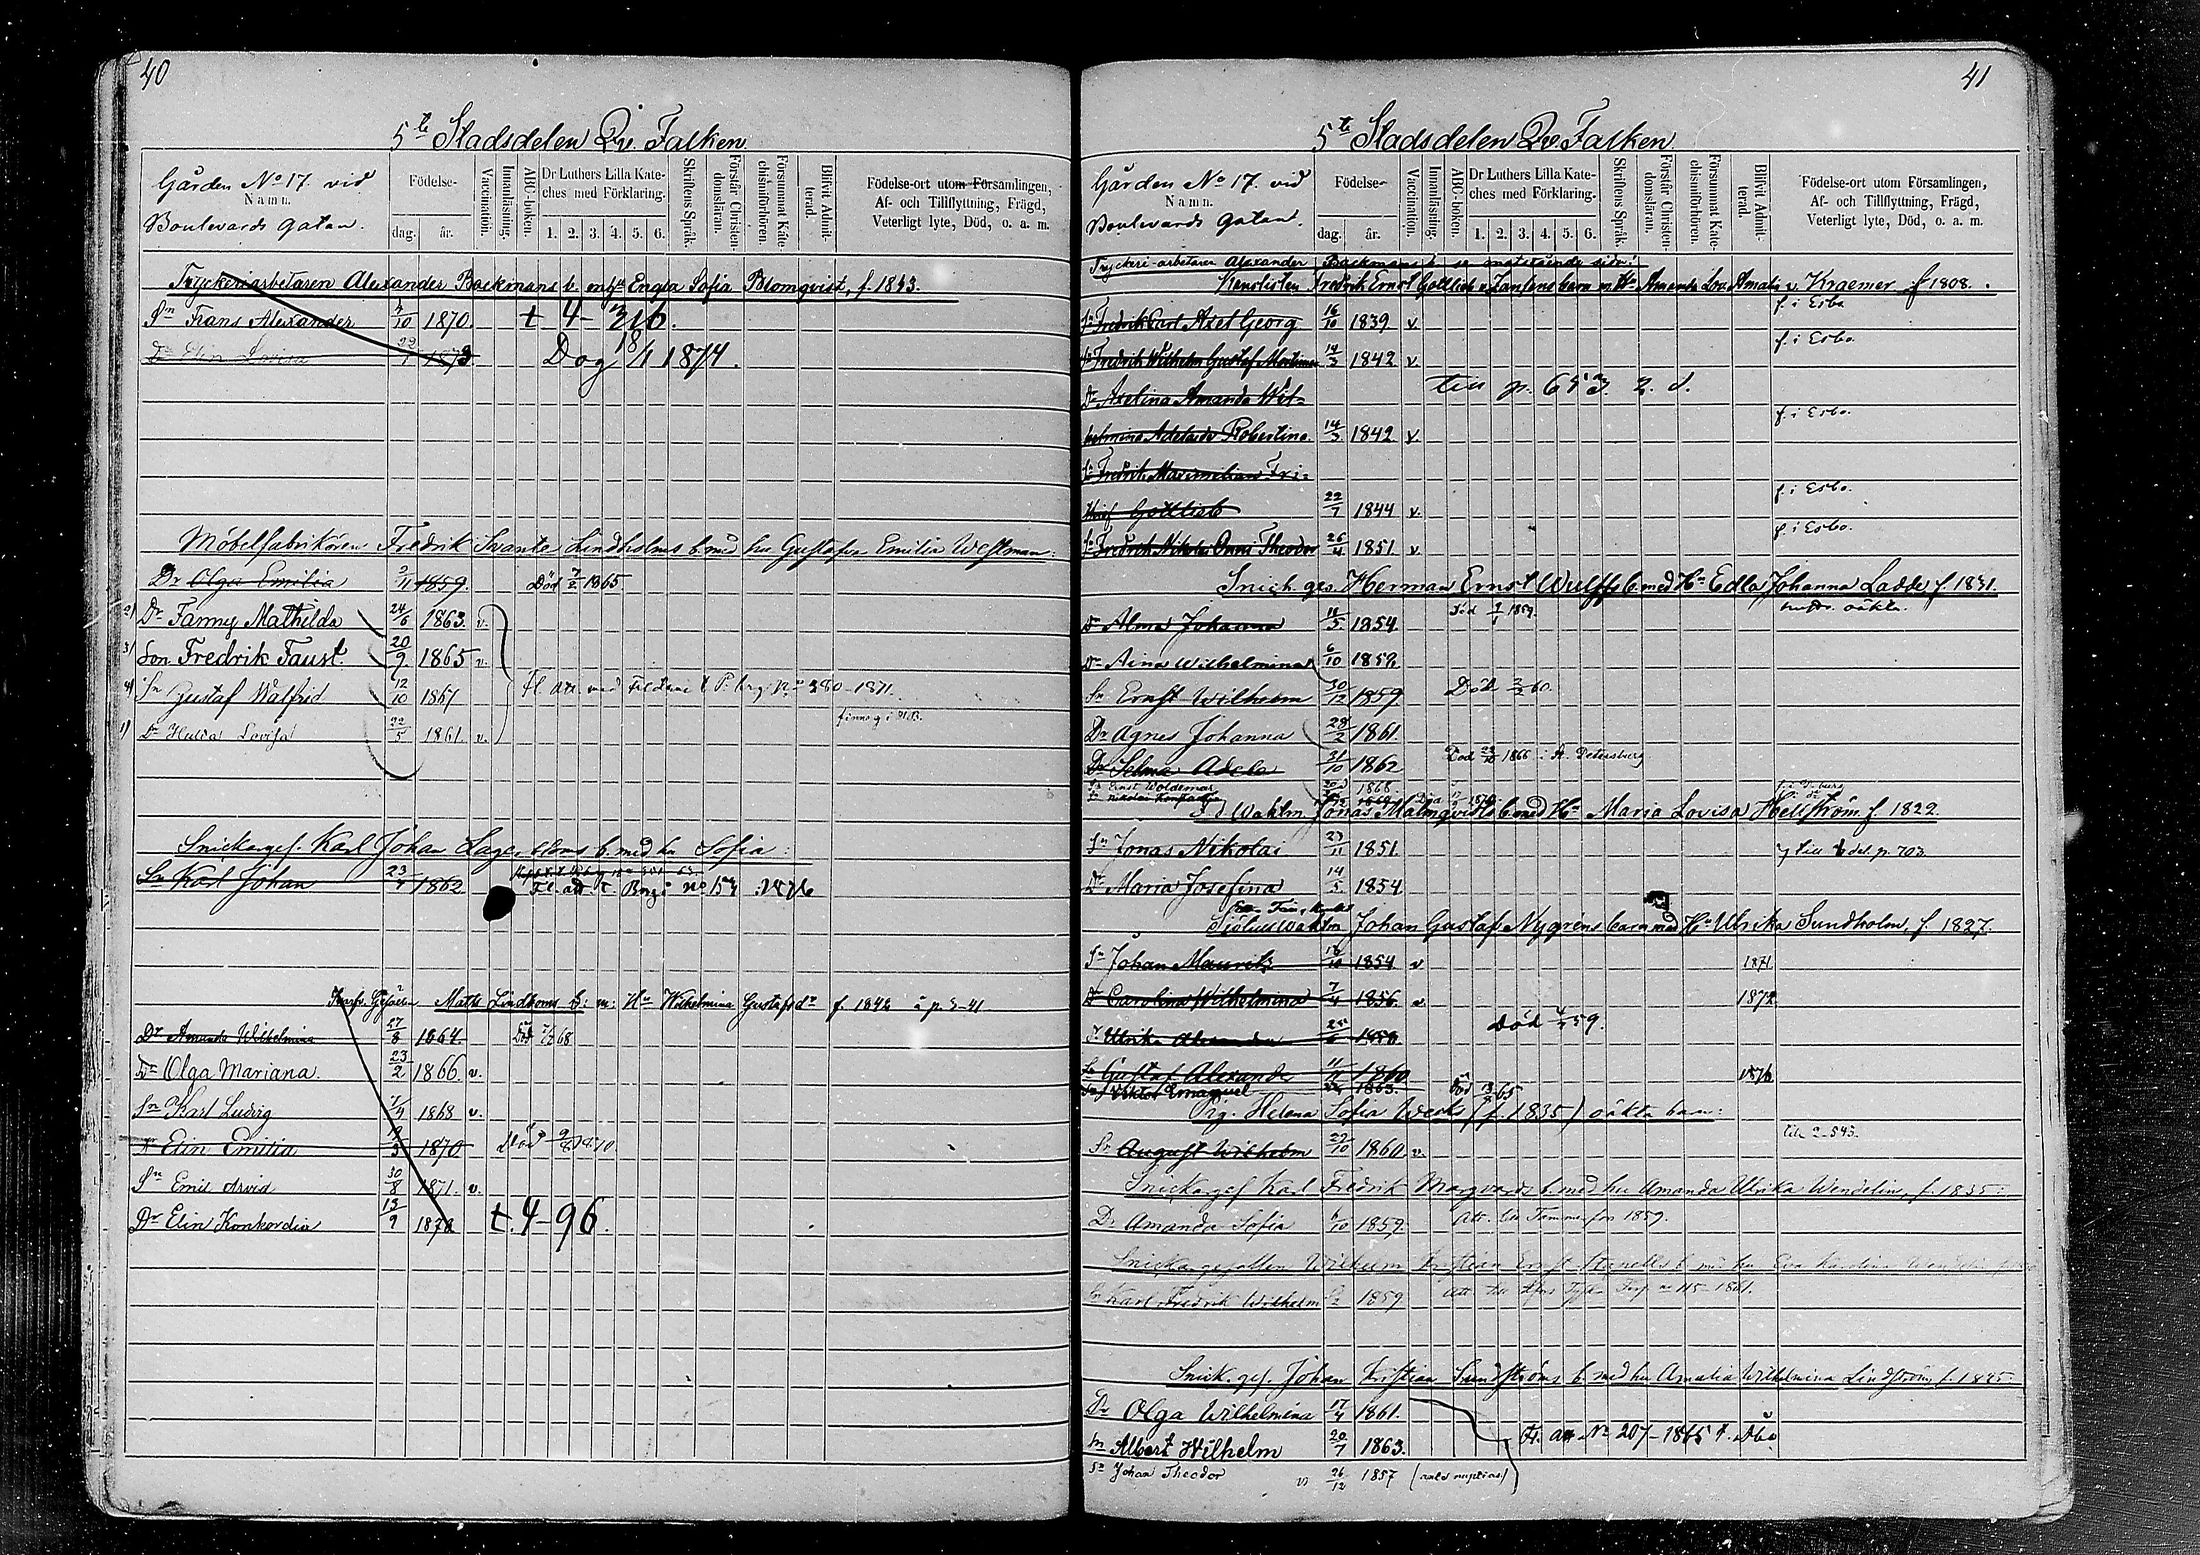 40
5te Stadsdelen Qv. Falken
Gården No 17. vid
Namn.
Boulevards gatan.
Födelse-
dag. år.
Vaccination.
Innanläsning.
ABC-boken.
Dr Luthers Lilla Kate-
ches med Förklaring.
1. 2. 3. 4. 5. 6.
Skriftens Språk.
Förstår Christen-
domsläran.
Försummat Kate-
chismiförhören.
Blifvit Admit-
terad.
Födelse-ort utom Församlingen,
Af- och Tillflyttning, Frägd,
Veterligt lyte, Död, o. a. m.
Tryckeriarbetaren Alexander Backmans b. Engla Sofia Blomqvist, f. 1843.
Sn Frans Alexander 10 1870. t 4-216.
Dr Elin Lovisa 22/1 1873 Dog 18/1 1874.
Möbelfabrikören Fredrik Svante Lindholms b. med hu Gustafva Emilia Westman:
Dr Olga Emilia 3/11 1859. Död 7/2 1865
2) Dr Fanny Mathilda 24/6 1863. v.
3) Son Fredrik Faust. 20/9 1865 v.
4) Sn Gustaf Walfrid 12/10 1867 380-1871.
1) Dr Hulda Lovisa 22/5 1861. v.
Snickargef. Karl Johan Lagerbloms b. med hu Sofia:
Sn Karl Johan 23/4 1862 Fl. att. t. Borgå No 154 1876
Mats Lindroms b: m: Hu Wilhelmina Gustafsdr f. 1842 å p. 3-41
Dr Amanda Wilhelmina 27/8 1864 Död 68
Dr Olga Mariana. 23/2 1866. v.
Sn Karl Ludvig 1/4 1868 v.
Dr Elin Emilia 1870 Död 9/8 1870
Sn Emil Arvid 30/8 1871. v.
Dr Elin Konkordia 13/9 1872 t. 4-96.
41
5te Stadsdelen Qv. Falken
Gården No 17. vid
Namn.
Boulevards gatan.
Födelse-
dag. år.
Vaccination.
Innanläsning.
ABC-boken.
Dr Luthers Lilla Kate-
ches med Förklaring.
1. 2. 3. 4. 5. 6.
Skriftens Språk.
Förstår Christen-
domsläran.
Försummat Kate-
chismiförhören.
Blifvit Admit-
terad.
Födelse-ort utom Församlingen,
Af- och Tillflyttning, Frägd,
Veterligt lyte, Död, o. a. m.
Tryckeri-arbetaren Alexander Backmans b. se motstående sida!
Kanslisten Fredrik Ernst Gottlieb v. Zansens barn m. Hu Amanda Lovisa Amalia v. Kraemer f 1808.
Sn Fredrik Carl Axel Georg 16/10 1839 v. f. i Esbo
Sn Fredrik Wilhelm Gustaf Mortimer 14/3 1842 v. f. i Esbo.
Dr Axelina Amanda Wil- till p. 653. 2. d.
helmina Adelaide Robertina. 14/3 1842 v. f. i Esbo.
Sn Fredrik Maximilian Fri-
Gottlieb 22/7 1844 v. f. i Esbo.
Sn Fredrik Nikolai Onni Theodor 26/4 1851 v. f. i Esbo.
Snick. ges. Herman Ernst Wulffs b. med Hu Edla Johanna Ladde f. 1831.
Dr Alma Johanna 11/5 1854. Död 1859. oäkta.
Dr Aina Wilhelmina 6/10 1856
Sn Ernst Wilhelm 30/12 1859 Död 3/2 60.
Dr Agnes Johanna 28/2 1861.
Dr Selma Adela 21/10 1862 Död 1866 i St. Petersburg
Sn Ernst Woldemar 1868
Sn Nikolai
Wahtm Jonas Malmqvists b. med Hu Maria Lovisa Hellström f. 1822.
Sn Jonas Nikolai 23/11 1851. till del. p. 703.
Dr Maria Josefina 14/5 1854
Johan Gustaf Nygréns barn med Hu Ulrika Sundholm, f. 1827.
Sn Johan Maurits 16/10 1854 v 1871
Dr Carolina Wilhelmina 7/4 1856. v 1872
Dr Ulrika Alexandra 1858 Död 59.
Sn Gustaf Alexander 1860 1876
Sn Viktor Emanuel 1863. Död 13 65
Pig. Helena Sofia Wecks (f. 1835) oäkta barn:
Sn August Wilhelm 27/10 1860 v. till 2-543.
Snickargef Karl Fredrik b. med hu Amanda Ulrika Wendelin, f. 1835:
Dr Amanda Sofia 6/10 1859. Att. till Tammerfors 1859.
Snickargesällen Wilhelm Kristian Ernst b. med hu Eva Karolina Wendelin
Sn Karl Fredrik Wilhelm 1859 115-1861.
Snick. gef. Johan Kristian Sundströms b. med hu Amalia Wilhelmina Lindström, f. 1835
Dr Olga Wilhelmina 17/4 1861.
Sn Albert Wilhelm 20/7 1863. Fl. att No 207-1865 t. Åbo
Sn Johan Theodor v) 26/12 1857